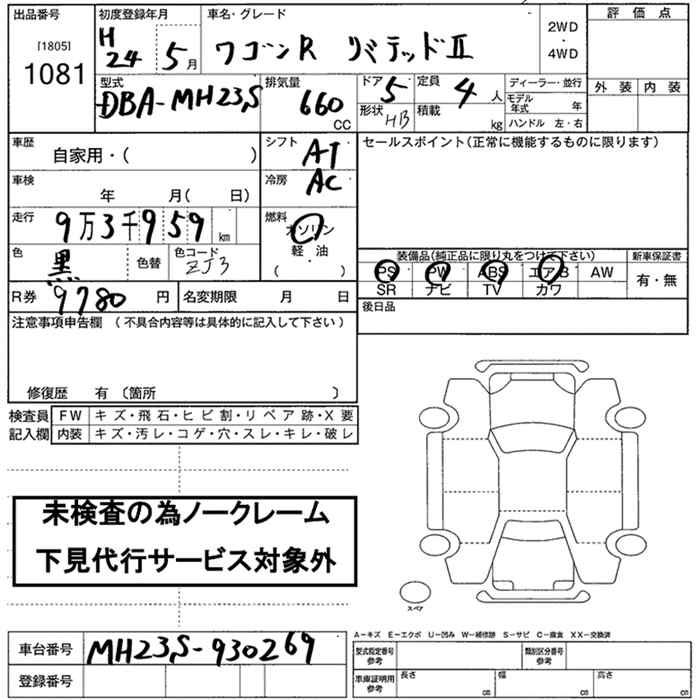 出品番号 初度登録年月 車名・グレード 評価点
[1805] H
1081 24 5月 ワゴンR リミテッドⅡ 2WD・4WD
外装 内装
型式 排気量 ドア 定員 ディーラー・並行
DBA-MH23S 660 CC 5 4人 モデル年式 年
形状 HB 積載 kg ハンドル 左・右
車歴 自家用・( ) シフト AT セールスポイント(正常に機能するものに限ります)
車検 年 月( 日) 冷房 AC
走行 9万3千959km 燃料 ガソリン
軽油
( )
色 黒 色替 色コード ZJ3
装備品(純正品に限り丸をつけて下さい) 新車保証書
PS PW ABS エアB AW 有・無
SR ナビ TV カワ
R券 9780円 名変期限 月 日 後日品
注意事項申告欄 (不具合内容等は具体的に記入して下さい)
修復歴 有 〔箇所 〕
検査員記入欄 FW キズ・飛石・ヒビ割・リペア跡・X要
内装 キズ・汚レ・コゲ・穴・スレ・キレ・破レ
未検査の為ノークレーム
下見代行サービス対象外
スペア
A-キズ E-エクボ U-凹み W-補修跡 S-サビ C-腐食 XX-交換済
車台番号 MH23S-930269 型式指定番号 参考 類別区分番号 参考
登録番号 車庫証明用 参考 長さ cm 幅 cm 高さ cm